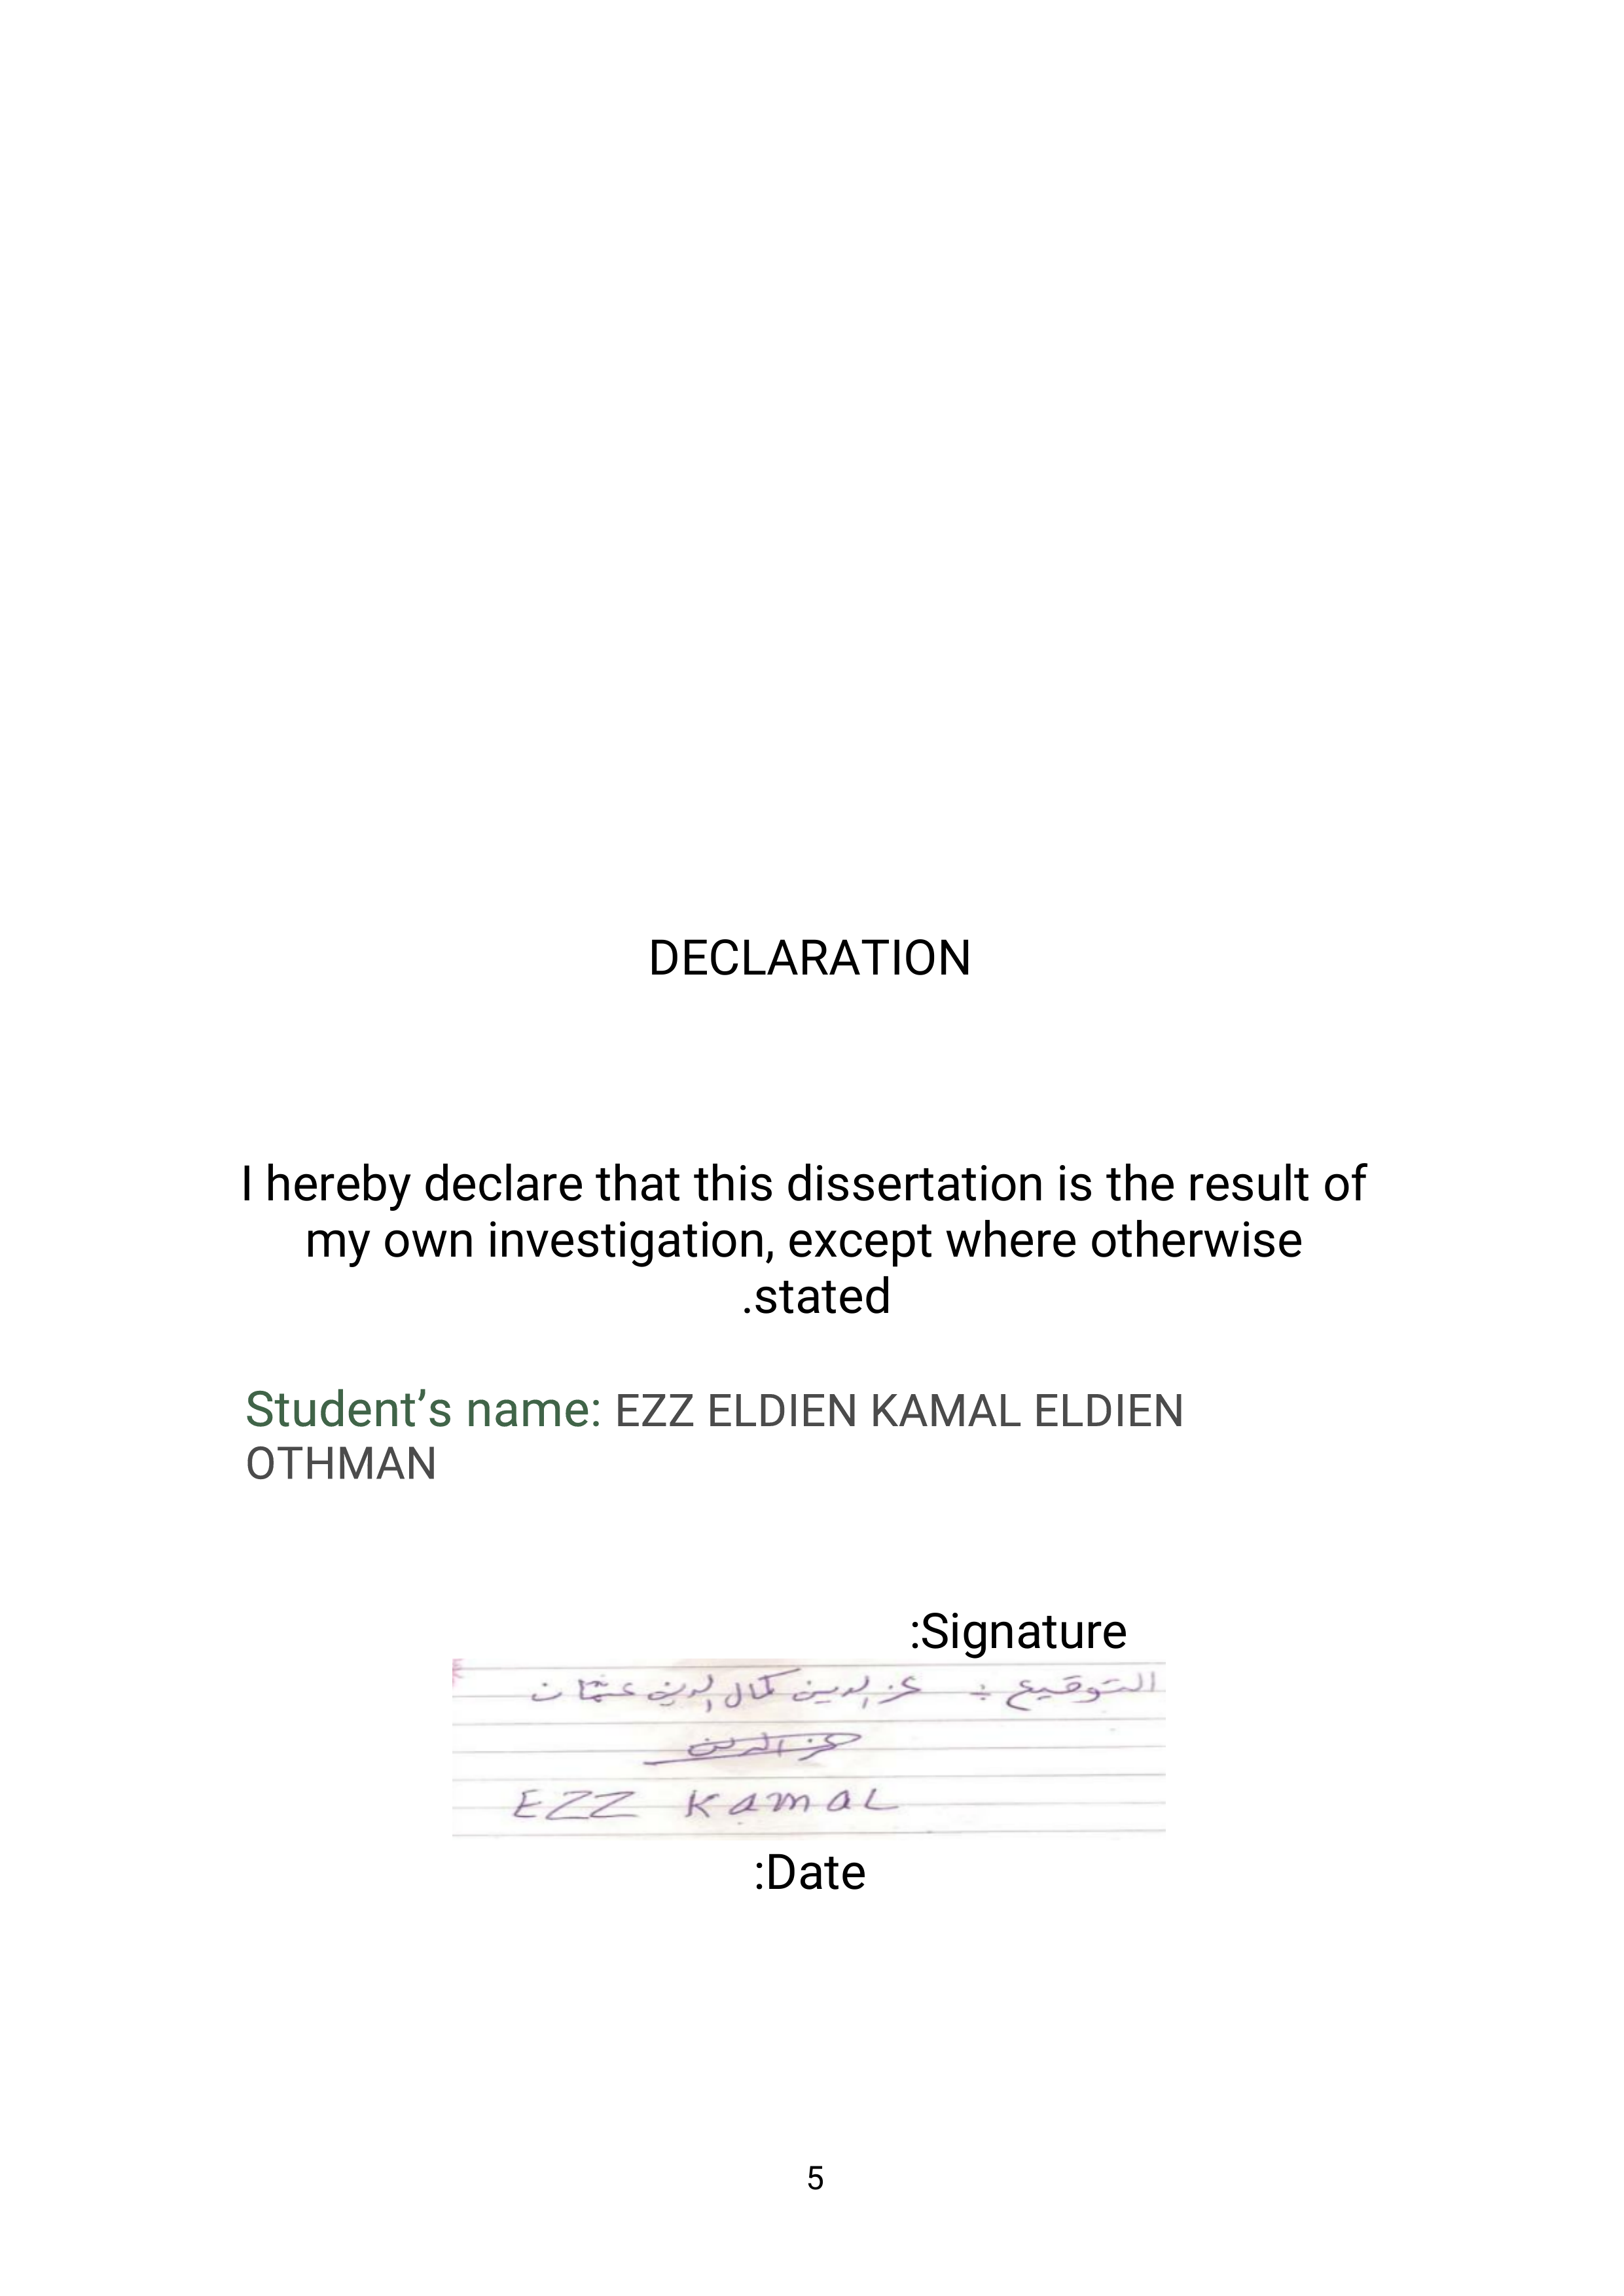 DECLARATION
I hereby declare that this dissertation is the result of
my own investigation, except where otherwise
.stated
Student’s name: EZZ ELDIEN KAMAL ELDIEN
OTHMAN
:Signature
التوقيع : عز الدين كمال الدين عثمان
عز الدين
EZZ Kamal
:Date
5